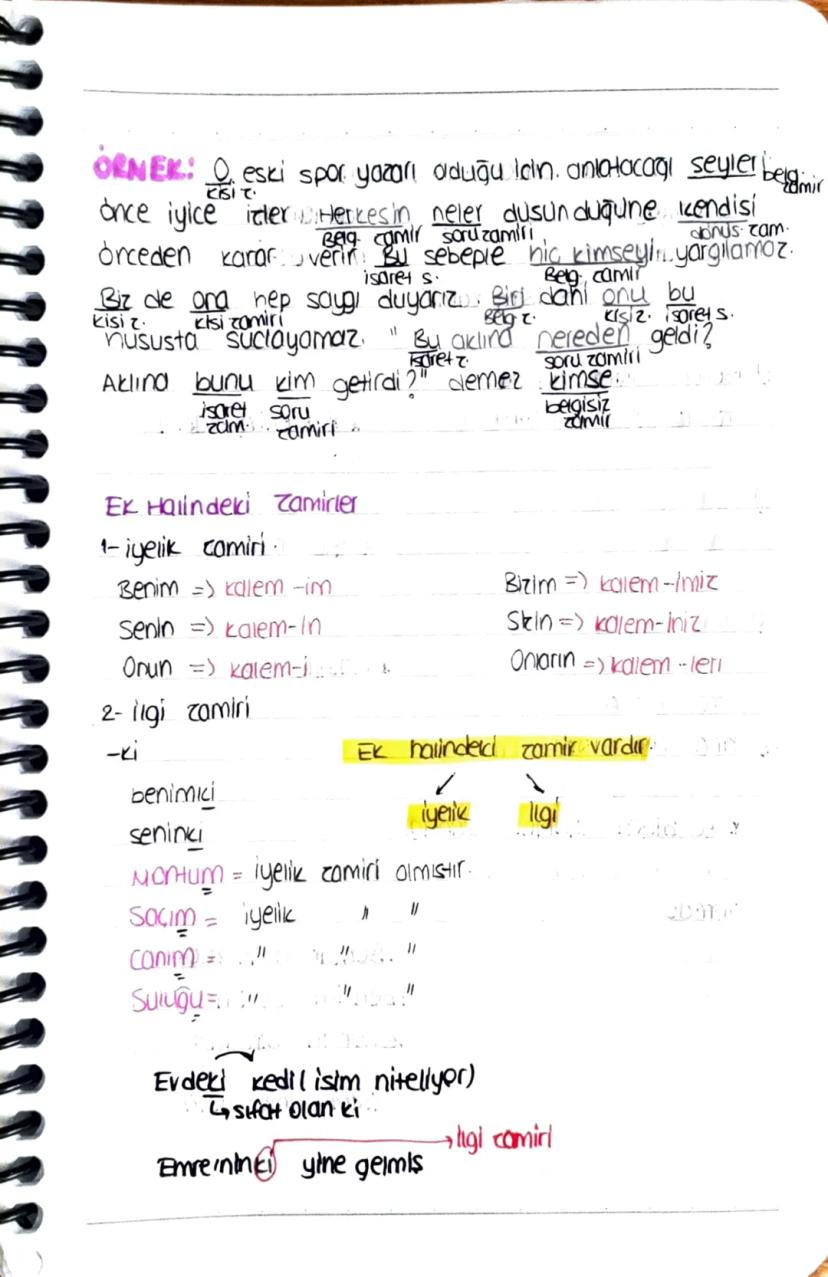 ÖRNEK: O, eski spor yazarı olduğu için. anlatacağı şeyleri belg. zamir
kişi z.
önce iyice izler. Herkesin neler düşündüğüne kendisi
Belg. zamir soru zamiri dönüş. zam.
önceden karar verir. Bu sebeple hiç kimseyi yargılamaz.
işaret s. Belg. zamir
Biz de ona hep saygı duyarız. Biri dahi onu bu
kişi z. kişi zamiri Belg z. kişi z. işaret s.
hususta suçlayamaz. "Bu aklına nereden geldi?
işaret z. soru zamiri
Aklına bunu kim getirdi?" demez kimse.
işaret zam. soru zamiri belgisiz zamir
Ek Halindeki Zamirler
1- iyelik zamiri.
Benim => kalem -im Bizim => kalem-imiz
Senin => kalem-in Sizin => kalem-iniz
Onun => kalem-i Onların => kalem -leri
2- ilgi zamiri
-ki Ek halindeki zamir vardır.
iyelik ilgi
benimki
seninki
Montum = iyelik zamiri olmıştır.
Saçım = iyelik " "
Canım = " " "
Suluğu = " " "
Evdeki kedi (isim niteliyor)
↳ sıfat olan ki
→ ilgi zamiri
Emre'ninki yine gelmiş